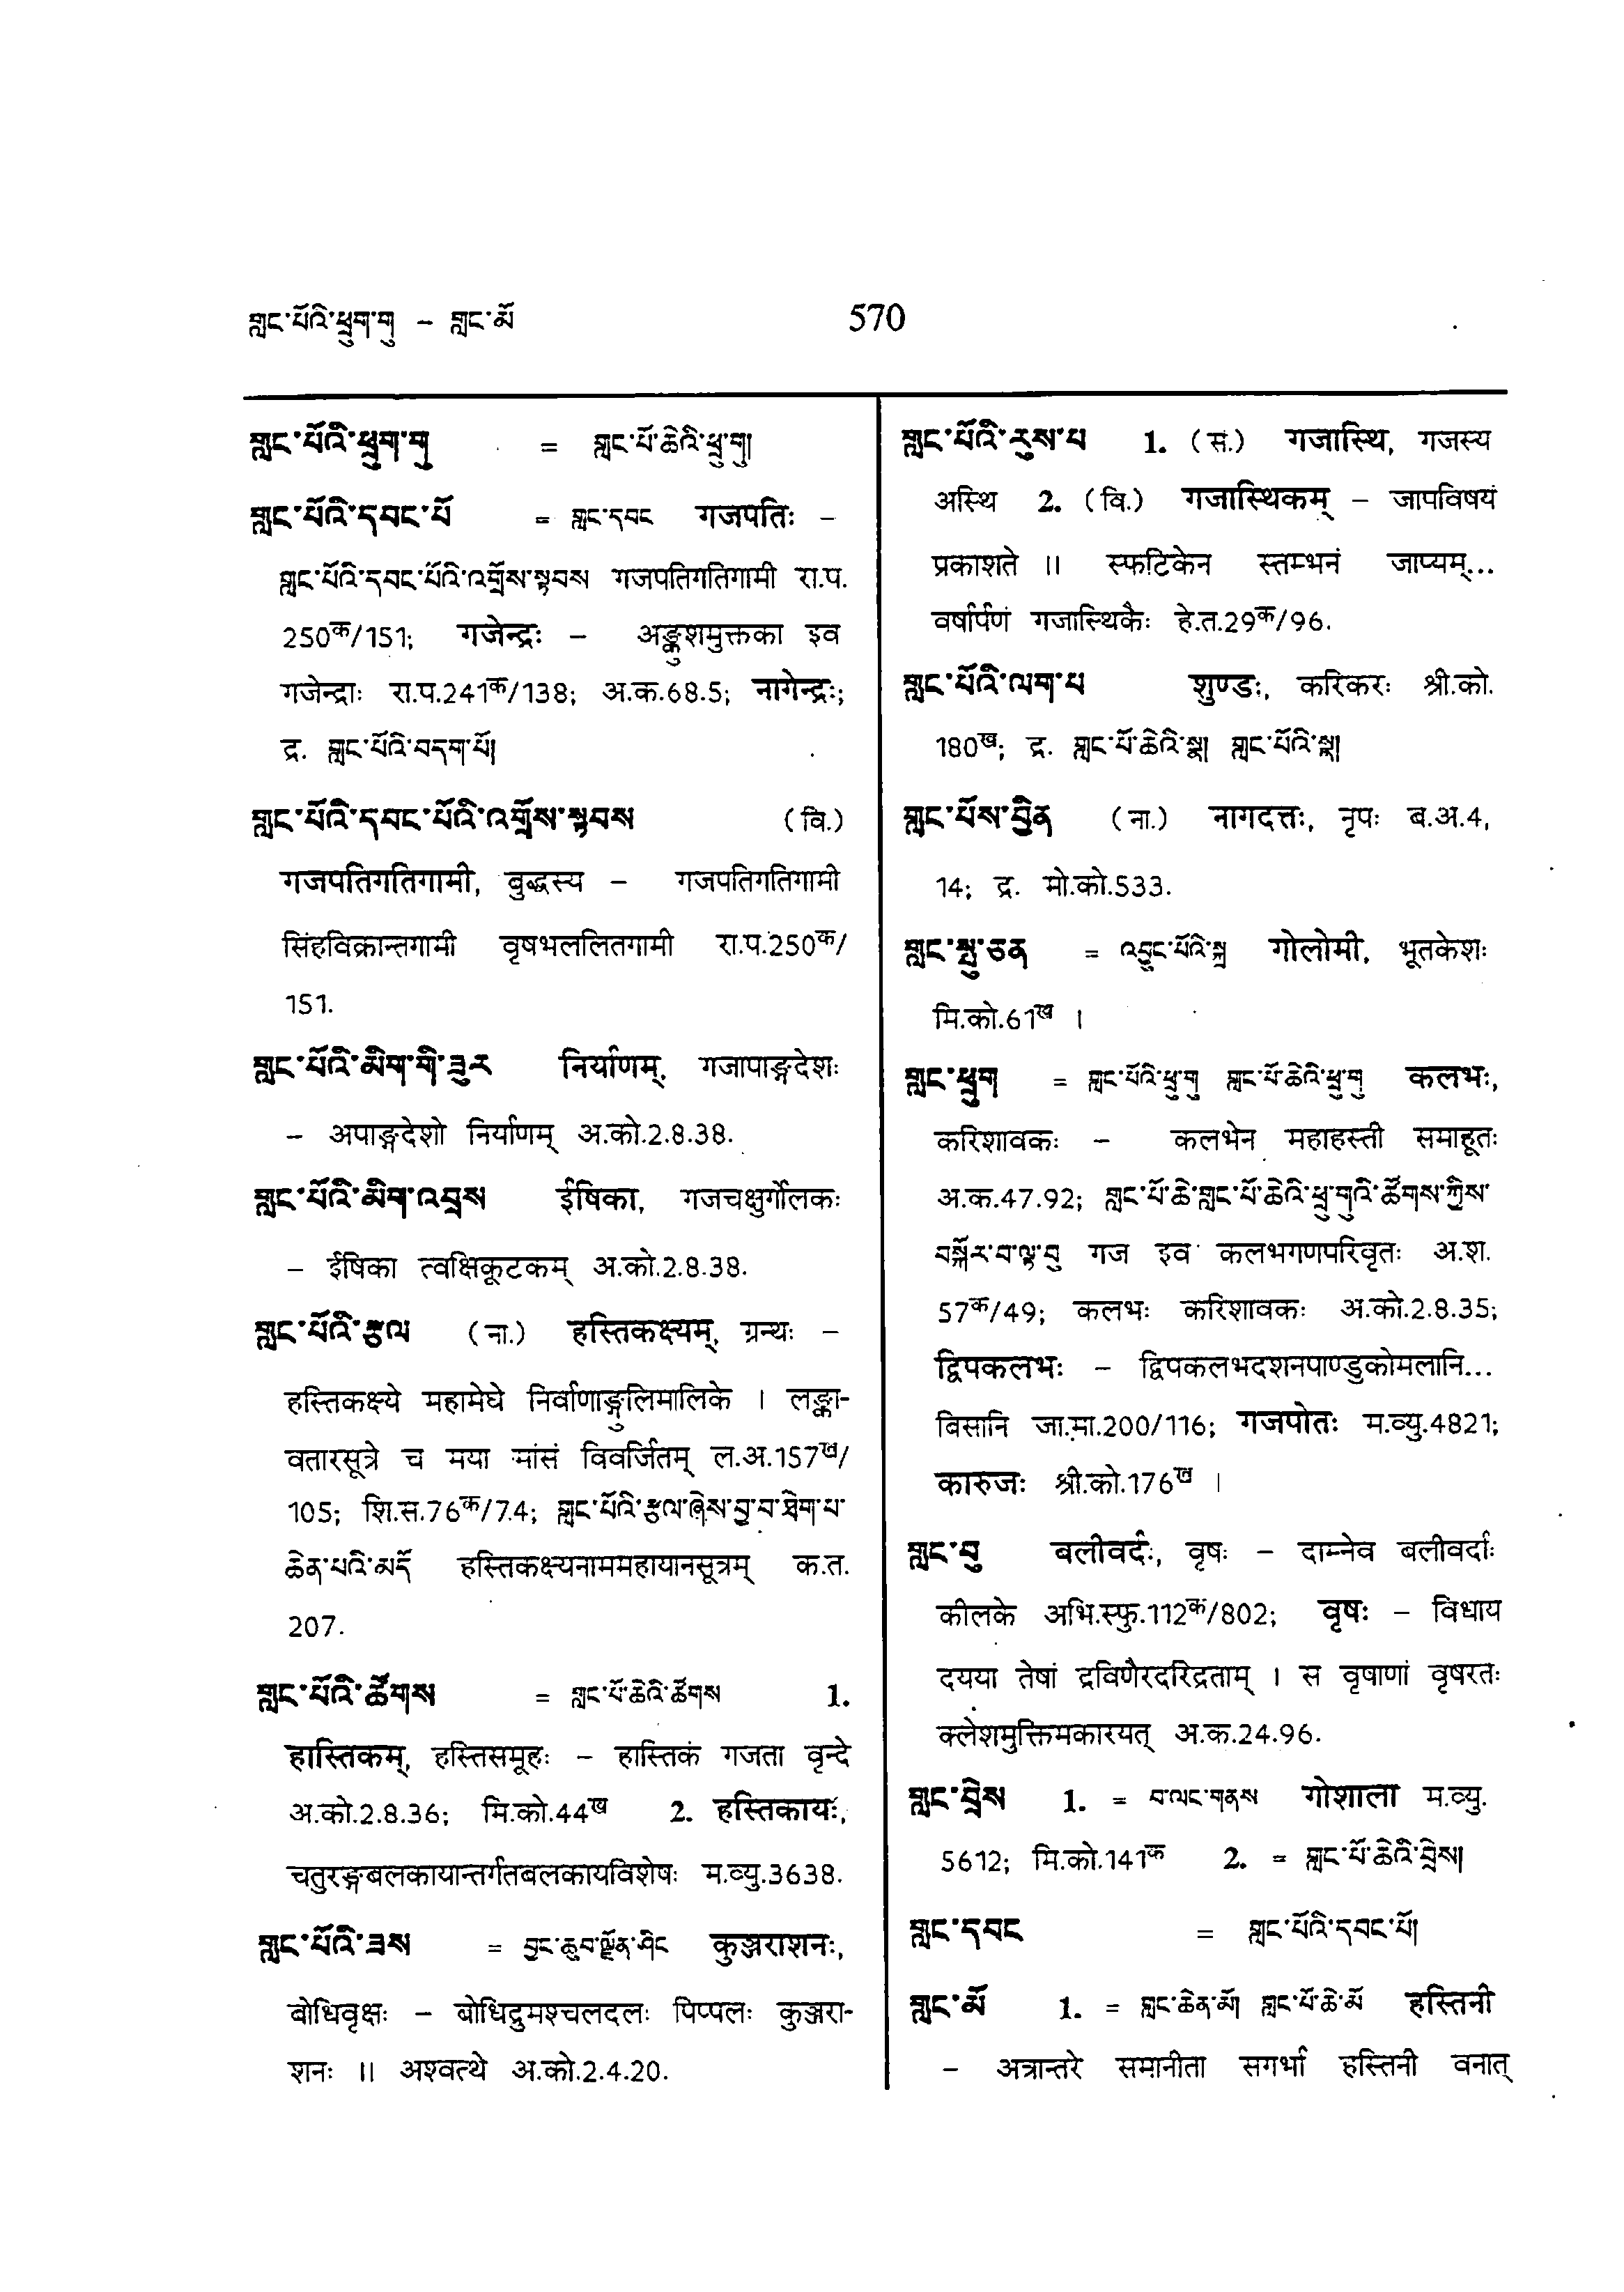 གླང་པོའི་ཕྲུག་གུ – གླང་མོ
570
གླང་པོའི་ཕྲུག་གུ = གླང་པོ་ཆེའི་ཕྲུ་གུ།
གླང་པོའི་དབང་པོ = གླང་དབང गजपतिः –
གླང་པོའི་དབང་པོའི་འགྲོས་སྟབས गजपतिगतिगामी रा.प.
250क/151; गजेन्द्रः – अङ्कुशमुक्तका इव
गजेन्द्राः रा.प.241क/138; अ.क.68.5; नागेन्द्रः;
द्र. གླང་པོའི་བདག་པོ།
གླང་པོའི་དབང་པོའི་འགྲོས་སྟབས (वि.)
गजपतिगतिगामी, बुद्धस्य – गजपतिगतिगामी
सिंहविक्रान्तगामी वृषभललितगामी रा.प.250क/
151.
གླང་པོའི་མིག་གི་ཟུར निर्याणम्, गजापाङ्गदेशः
– अपाङ्गदेशो निर्याणम् अ.को.2.8.38.
གླང་པོའི་མིག་འབྲས ईषिका, गजचक्षुर्गोलकः
– ईषिका त्वक्षिकूटकम् अ.को.2.8.38.
གླང་པོའི་རྩལ (ना.) हस्तिकक्ष्यम्, ग्रन्थः –
हस्तिकक्ष्ये महामेघे निर्वाणाङ्गुलिमालिके । लङ्का-
वतारसूत्रे च मया मांसं विवर्जितम् ल.अ.157ख/
105; शि.स.76क/74; གླང་པོའི་རྩལ་ཞེས་བྱ་བ་ཐེག་པ་
ཆེན་པའི་མདོ हस्तिकक्ष्यनाममहायानसूत्रम् क.त.
207.
གླང་པོའི་ཚོགས = གླང་པོ་ཆེའི་ཚོགས 1.
हास्तिकम्, हस्तिसमूहः – हास्तिकं गजता वृन्दे
अ.को.2.8.36; मि.को.44ख 2. हस्तिकायः,
चतुरङ्गबलकायान्तर्गतबलकायविशेषः म.व्यु.3638.
གླང་པོའི་ཟས = བྱང་ཆུབ་ལྗོན་ཤིང कुञ्जराशनः,
बोधिवृक्षः – बोधिद्रुमश्चलदलः पिप्पलः कुञ्जरा-
शनः ॥ अश्वत्थे अ.को.2.4.20.
གླང་པོའི་རུས་པ 1. (सं.) गजास्थि, गजस्य
अस्थि 2. (वि.) गजास्थिकम् – जापविषयं
प्रकाशते ॥ स्फटिकेन स्तम्भनं जाप्यम्...
वर्षार्पणं गजास्थिकैः हे.त.29क/96.
གླང་པོའི་ལག་པ शुण्डः, करिकरः श्री.को.
180ख; द्र. གླང་པོ་ཆེའི་སྣ། གླང་པོའི་སྣ།
གླང་པོས་བྱིན (ना.) नागदत्तः, नृपः ब.अ.4,
14; द्र. मो.को.533.
གླང་སྤུ་ཅན = འབྱུང་པོའི་སྐྲ गोलोमी, भूतकेशः
मि.को.61ख ।
གླང་ཕྲུག = གླང་པོའི་ཕྲུ་གུ གླང་པོ་ཆེའི་ཕྲུ་གུ कलभः,
करिशावकः – कलभेन महाहस्ती समाहूतः
अ.क.47.92; གླང་པོ་ཆེ་གླང་པོ་ཆེའི་ཕྲུ་གུའི་ཚོགས་ཀྱིས་
བསྐོར་བ་ལྟ་བུ गज इव कलभगणपरिवृतः अ.श.
57क/49; कलभः करिशावकः अ.को.2.8.35;
द्विपकलभः – द्विपकलभदशनपाण्डुकोमलानि...
बिसानि जा.मा.200/116; गजपोतः म.व्यु.4821;
कारुजः श्री.को.176ख ।
གླང་བུ बलीवर्दः, वृषः – दाम्नेव बलीवर्दाः
कीलके अभि.स्फु.112क/802; वृषः – विधाय
दयया तेषां द्रविणैरदरिद्रताम् । स वृषाणां वृषरतः
क्लेशमुक्तिमकारयत् अ.क.24.96.
གླང་བྲེས 1. = བ་ལང་གནས गोशाला म.व्यु.
5612; मि.को.141क 2. = གླང་པོ་ཆེའི་བྲེས།
གླང་དབང = གླང་པོའི་དབང་པོ།
གླང་མོ 1. = གླང་ཆེན་མོ། གླང་པོ་ཆེ་མོ हस्तिनी
– अत्रान्तरे समानीता सगर्भा हस्तिनी वनात्